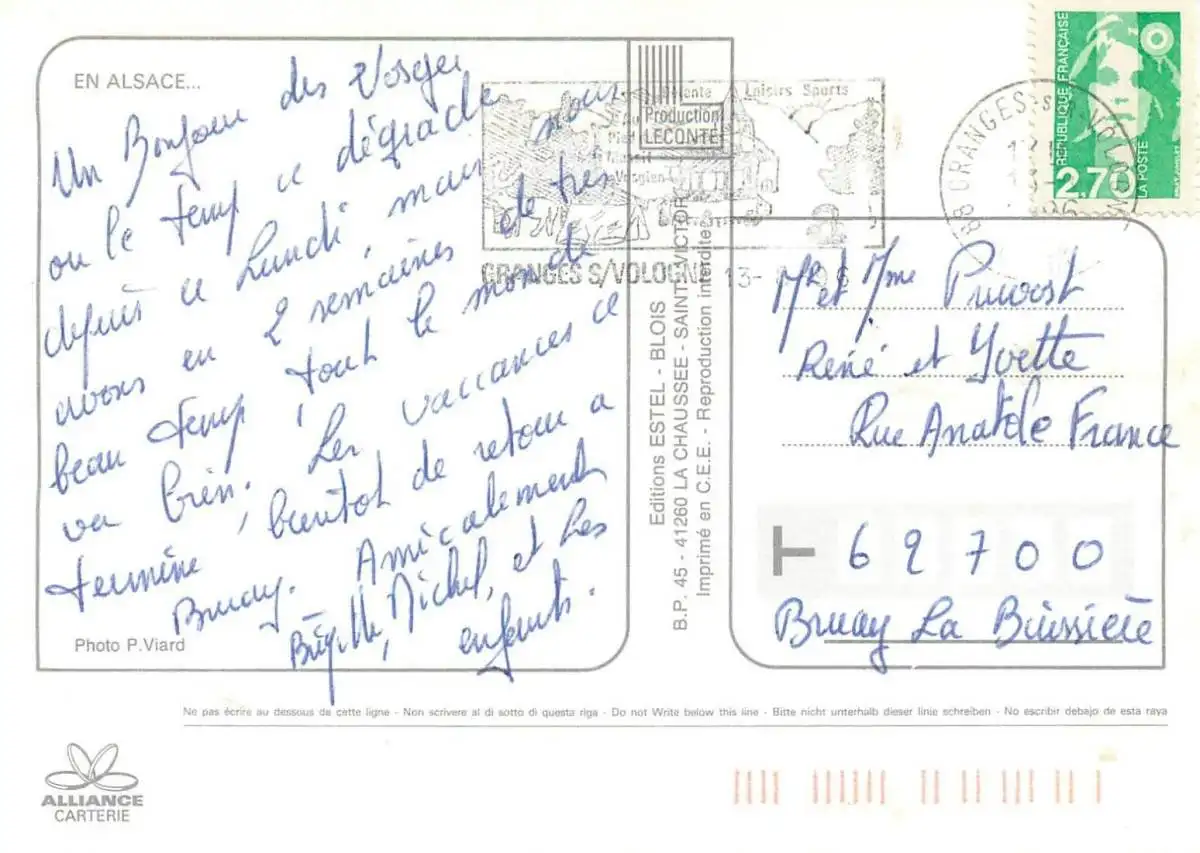 EN ALSACE...
Un Bonjour des Vosges
ou le temp ce dégrade
depuis ce Lundi, mais nous
avons en 2 semaines de très
beau temp, tout le monde
va bien. Les vaccances ce
termine, bientot de retour a
Bruay. Amicalement
Brigitte, Michel, et Les
enfants.
Photo P.Viard
Production
LECONTE
Détente Loisirs Sports
Massif
Vosgien
GRANGES S/VOLOGNE 13-
88 GRANGES-S-VOLOGNE
RÉPUBLIQUE FRANÇAISE
2,70
LA POSTE
Editions ESTEL - BLOIS
B.P. 45 - 41260 LA CHAUSSEE - SAINT-VICTOR
Imprimé en C.E.E. - Reproduction interdite
Mr et Mme Pruvost
René et Yvette
Rue Anatole France
62700
Bruay La Buissière
Ne pas écrire au dessous de cette ligne - Non scrivere al di sotto di questa riga - Do not Write below this line - Bitte nicht unterhalb dieser linie schreiben - No escribir debajo de esta raya
ALLIANCE
CARTERIE